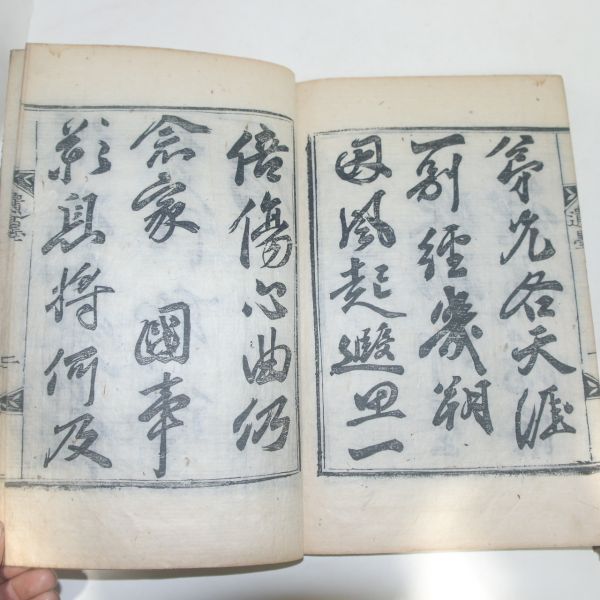 弟兄各天涯
一別經幾朔
因風起遐思一
倍傷心曲仍
念家 國事
影息將何及